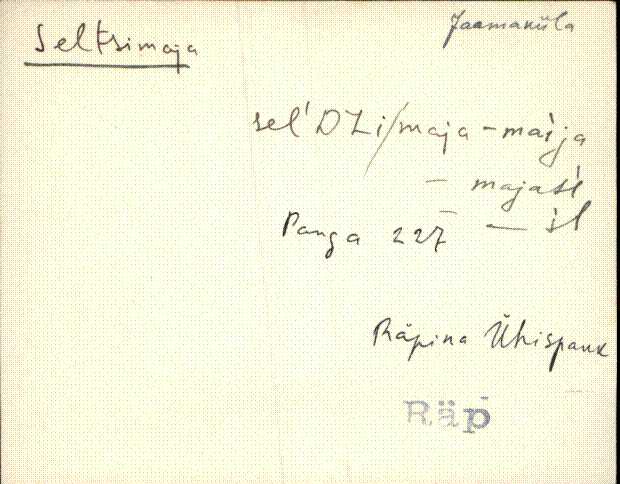 Jaamaküla
Seltsimaja
sel'DZi/maja - maija
- majasť
Panga 227 - iľ
Räpina Ühispank
Räp